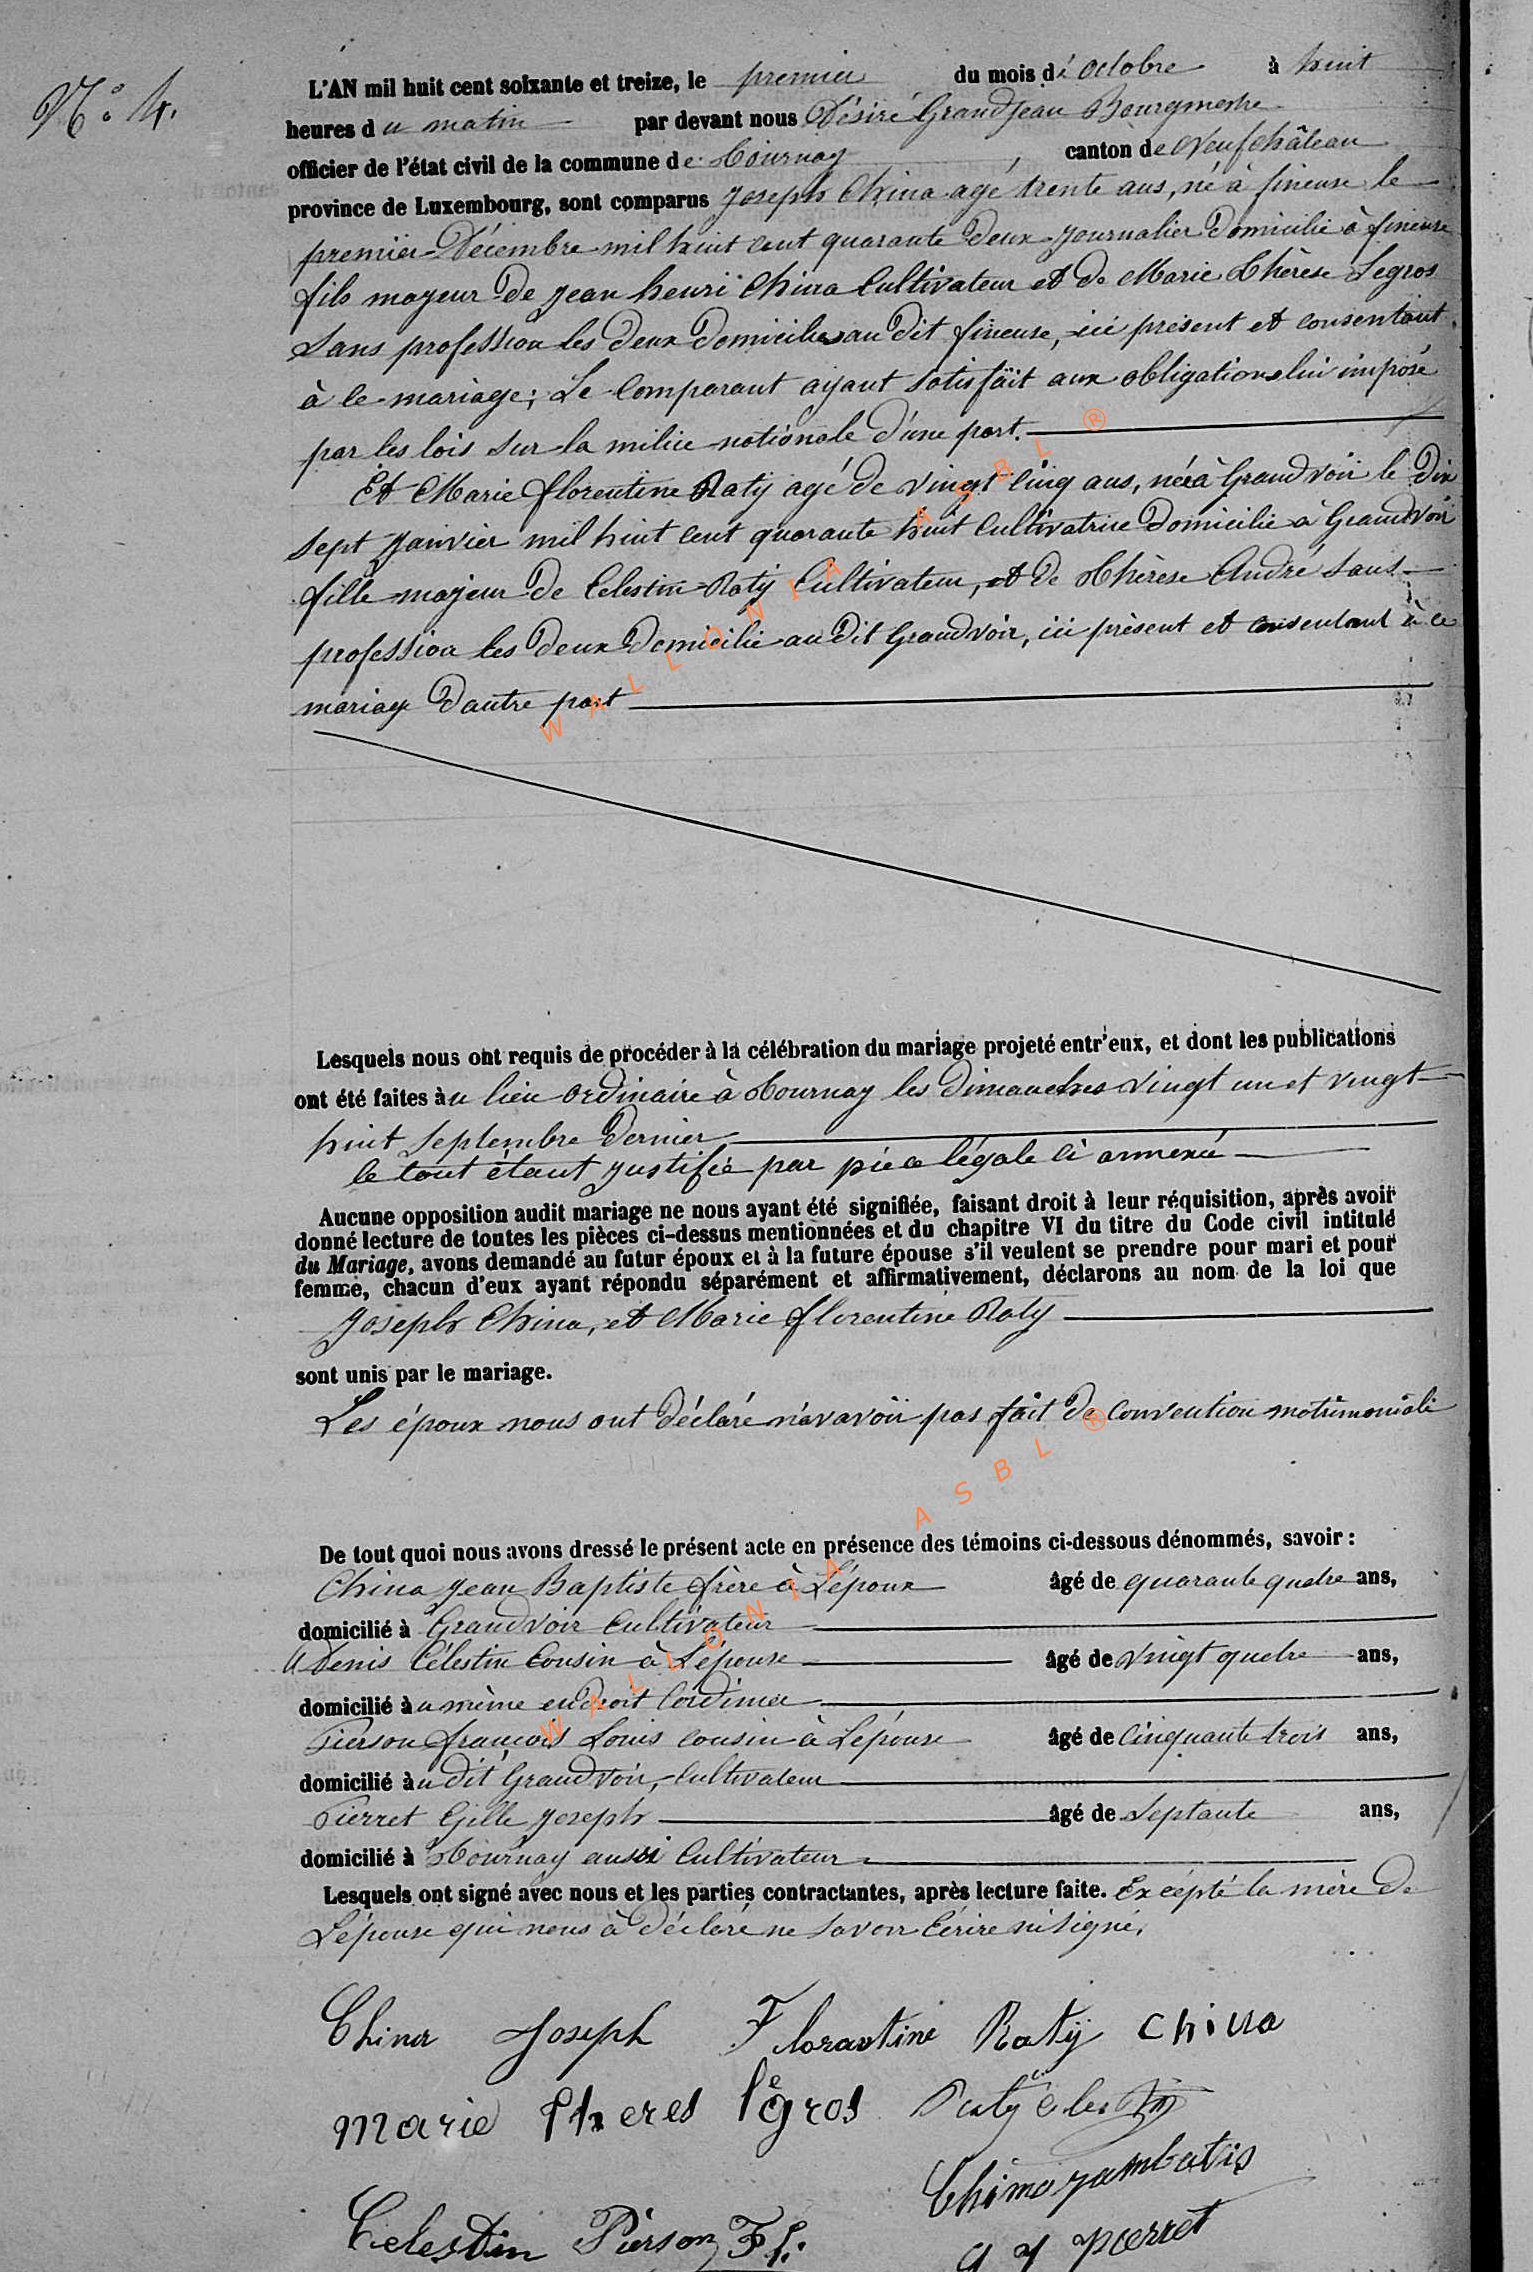 N.° 4.
L'AN mil huit cent soixante et treize, le premier du mois d' octobre à huit
heures du matin par devant nous Désiré Grandjean Bourgmestre
officier de l'état civil de la commune de Tournay canton de Neufchâteau
province de Luxembourg, sont comparus Joseph China agé trente ans, né à fineuse le
premier Décembre mil huit cent quarante deux journalier Domicilié à fineuse
fils mayeur de jean henri China Cultivateur et de Marie Thérèse Legros
Sans profession les deux Domiciliés au dit fineuse, ici présent et consentant
à ce mariage; Le Comparant ayant satisfait aux obligations lui imposé
par les lois sur la milice nationale d'une part.
Et Marie florentine Raty agé de vingt cinq ans, née à Grandvoir le Dix
sept Janvier mil huit cent quarante huit Cultivatrice Domicilié à Grandvoir
fille majeur de Celestin Raty Cultivateur, et de Thérèse André Sans
profession les deux Domicilié au dit Grandvoir, ici présent et consentant à ce
mariage D'autre part
Lesquels nous ont requis de procéder à la célébration du mariage projeté entr'eux, et dont les publications
ont été faites àu lieu ordinaire à Tournay les Dimanches vingt un et vingt
huit Septembre Dernier
le tout étant justifié par pièce légale ci annexé
Aucune opposition audit mariage ne nous ayant été signifiée, faisant droit à leur réquisition, après avoir
donné lecture de toutes les pièces ci-dessus mentionnées et du chapitre VI du titre du Code civil intitulé
du Mariage, avons demandé au futur époux et à la future épouse s'il veulent se prendre pour mari et pour
femme, chacun d'eux ayant répondu séparément et affirmativement, déclarons au nom de la loi que
Joseph China, et Marie florentine Raty
sont unis par le mariage.
Les époux nous ont déclaré n'avavoir pas fait de Convention matrimoniale
De tout quoi nous avons dressé le présent acte en présence des témoins ci-dessous dénommés, savoir :
China Jean Baptiste frère à L'époux âgé de quarante quatre ans,
domicilié à Grandvoir Cultivateur
Denis Célestin Cousin à L'épouse âgé de vingt quatre ans,
domicilié àu même endroit Cordonier
Pierson françois Louis cousin à L'épouse âgé de Cinquante trois ans,
domicilié àu dit Grandvoir, Cultivateur
Pierret Gille Joseph âgé de Septante ans,
domicilié à Tournay aussi Cultivateur
Lesquels ont signé avec nous et les parties contractantes, après lecture faite. Excépté la mère de
L'épouse qui nous à déclaré ne savoir Écrire ni signé.
China Joseph Florantine Raty China
Marie Theres legros Raty Celestin
China jambatis
Celestin Pierson F L. g j pierret
WALLONIA ASBL ®
WALLONIA ASBL ®